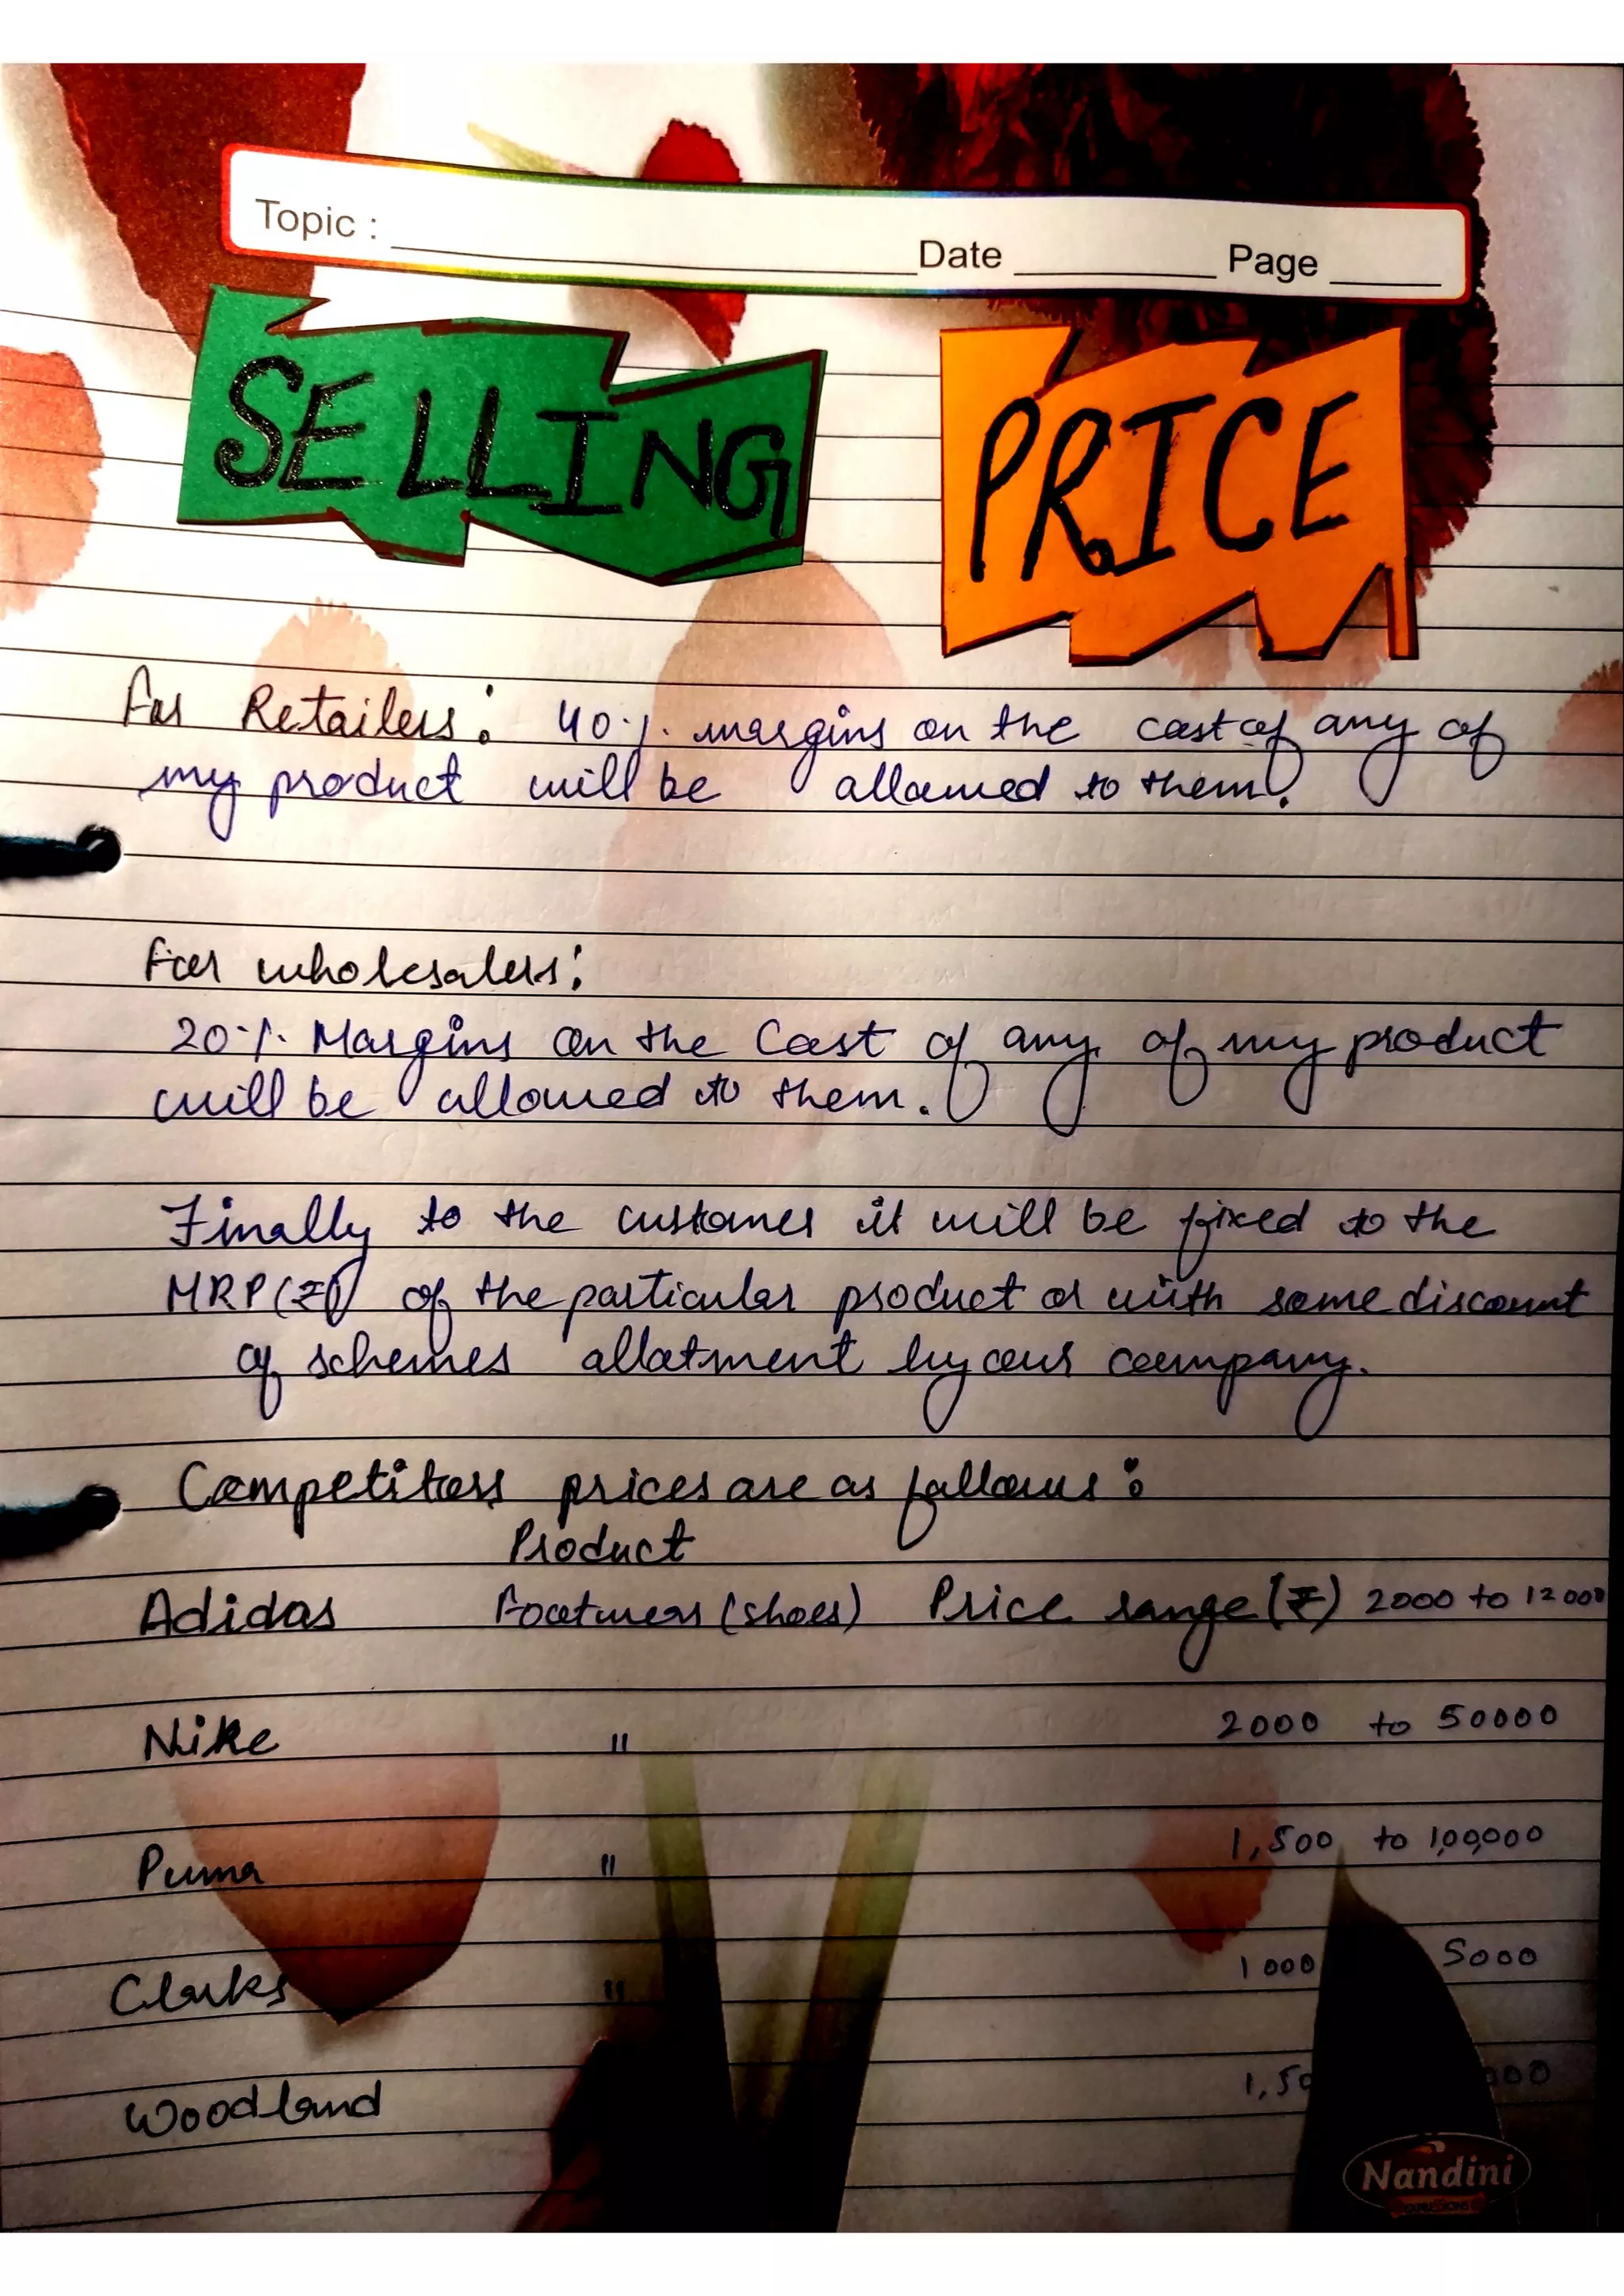 Topic : Date Page
SELLING PRICE
For Retailers: 40% margins on the cost of any of
my product will be allowed to them.
For wholesalers:
20% Margins on the Cost of any of my product
will be allowed to them.
Finally to the customer it will be fixed to the
MRP(₹) of the particular product or with some discount
of schemes allotment by our company.
Competitors prices are as follows:
Product
Adidas Footwears (shoes) Price range (₹) 2000 to 12000
Nike " 2000 to 50000
Puma " 1,500 to 1,00,000
Clarks " 1000 5000
Woodland
Nandini